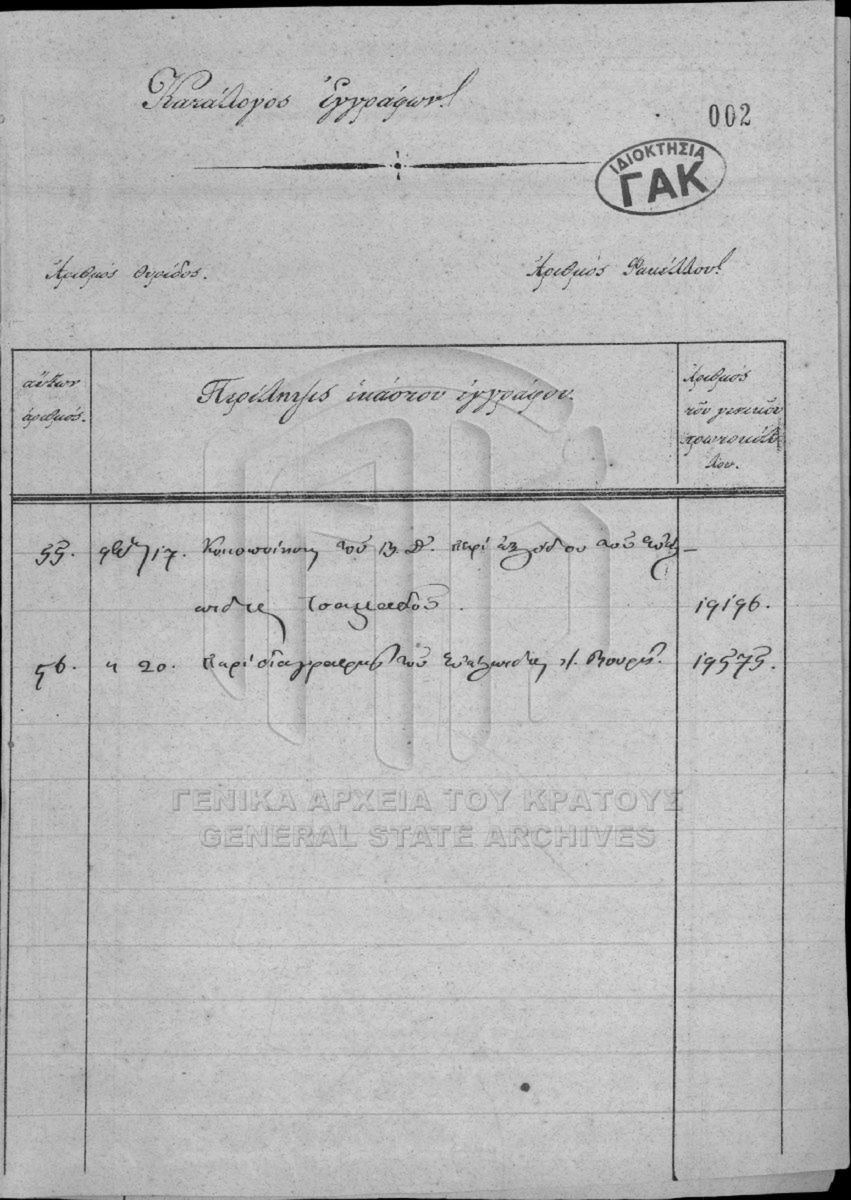 Κατάλογος Ἐγγράφων
002
ΙΔΙΟΚΤΗΣΙΑ
ΓΑΚ
Ἀριθμός θυρίδος.
Ἀριθμός Φακέλλου
αὔξων
ἀριθμός.
Περίληψις ἑκάστου ἐγγράφου.
Ἀριθμός
τοῦ γενικοῦ
πρωτοκόλ
λου.
55. 17. Κοινοποίησις τοῦ Β. Δ. περὶ τοῦ Εὐελ-
πιδος Τσαμαδοῦ. 19196.
56. " 20. Περὶ διαγραφῆς τοῦ Εὐέλπιδος 19575.
ΓΕΝΙΚΑ ΑΡΧΕΙΑ ΤΟΥ ΚΡΑΤΟΥΣ
GENERAL STATE ARCHIVES